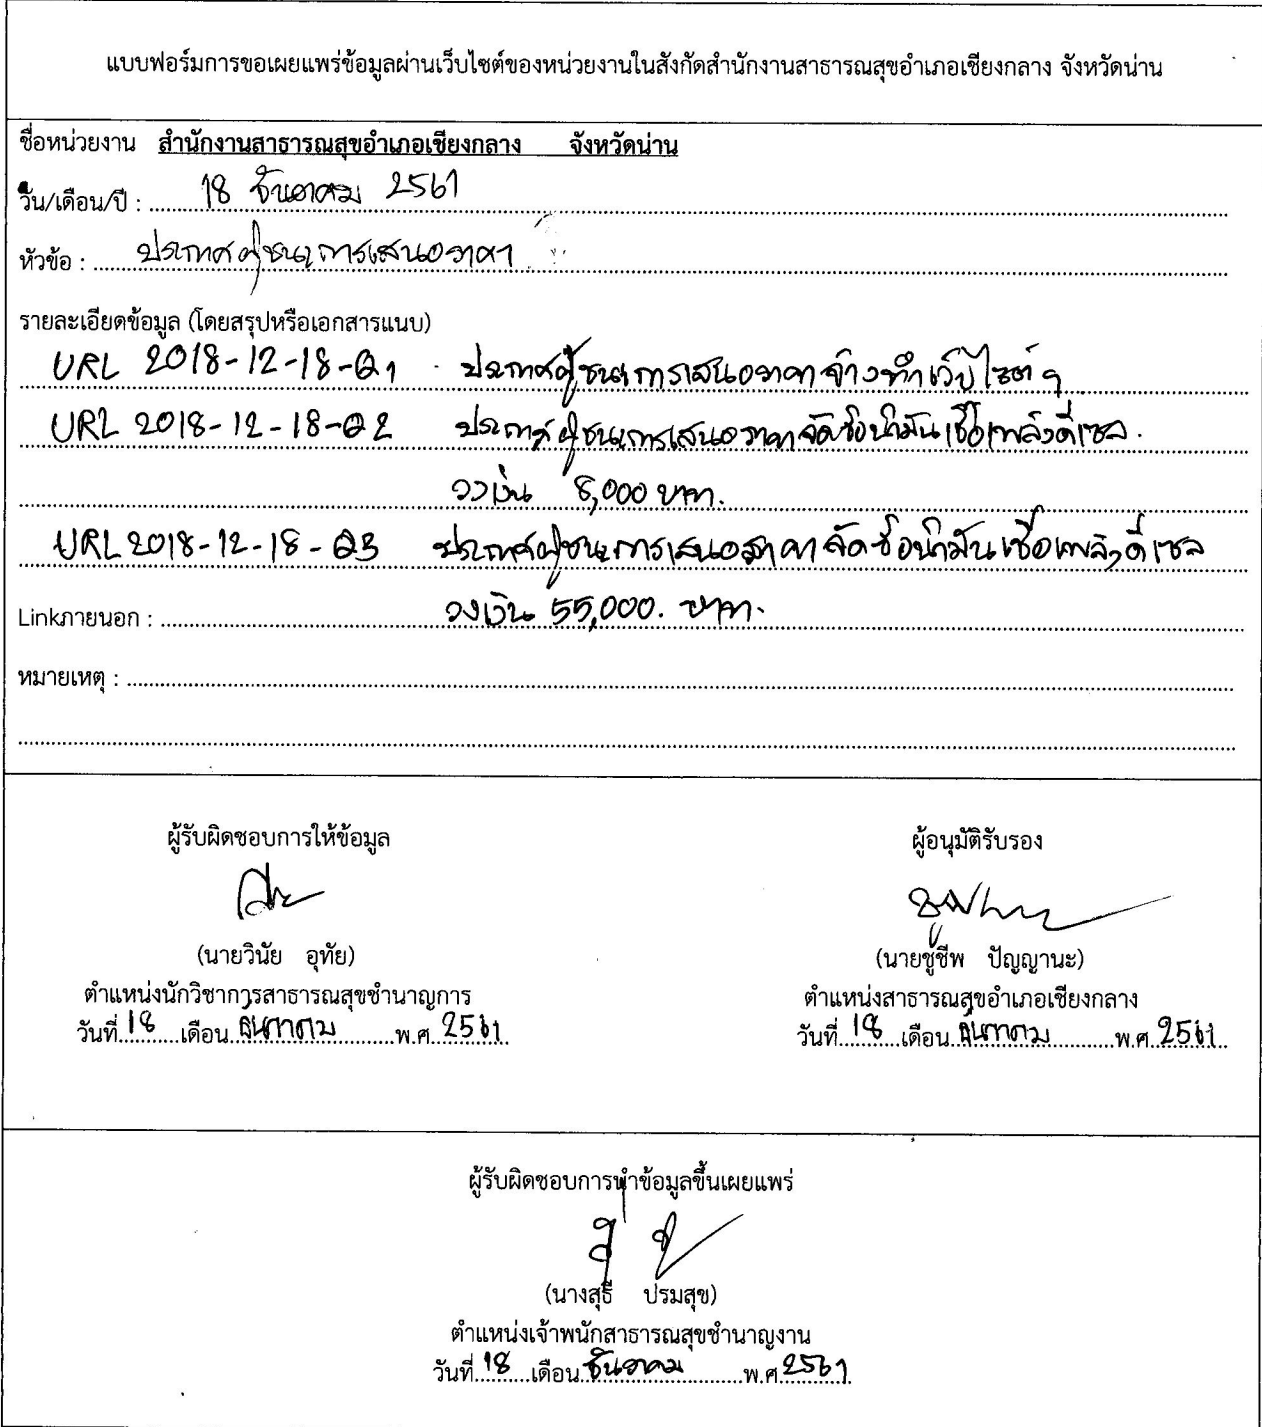 แบบฟอร์มการขอเผยแพร่ข้อมูลผ่านเว็บไซต์ของหน่วยงานในสังกัดสำนักงานสาธารณสุขอำเภอเชียงกลาง จังหวัดน่าน
ชื่อหน่วยงาน สำนักงานสาธารณสุขอำเภอเชียงกลาง จังหวัดน่าน
วัน/เดือน/ปี : 18 ธันวาคม 2561
หัวข้อ : ประกาศผู้ชนะการเสนอราคา
รายละเอียดข้อมูล (โดยสรุปหรือเอกสารแนบ)
URL 2018-12-18-Q1 ประกาศผู้ชนะการเสนอราคาจ้างทำเว็บไซต์ฯ
URL 2018-12-18-Q2 ประกาศผู้ชนะการเสนอราคาจัดซื้อน้ำมันเชื้อเพลิงดีเซล.
วงเงิน 8,000 บาท.
URL 2018-12-18-Q3 ประกาศผู้ชนะการเสนอราคาจัดซื้อน้ำมันเชื้อเพลิงดีเซล
Linkภายนอก : วงเงิน 55,000. บาท.
หมายเหตุ :
ผู้รับผิดชอบการให้ข้อมูล ผู้อนุมัติรับรอง
(นายวินัย อุทัย) (นายชูชีพ ปัญญานะ)
ตำแหน่งนักวิชาการสาธารณสุขชำนาญการ ตำแหน่งสาธารณสุขอำเภอเชียงกลาง
วันที่ 18 เดือน ธันวาคม พ.ศ. 2561 วันที่ 18 เดือน ธันวาคม พ.ศ. 2561
ผู้รับผิดชอบการนำข้อมูลขึ้นเผยแพร่
(นางสุธี ปรมสุข)
ตำแหน่งเจ้าพนักสาธารณสุขชำนาญงาน
วันที่ 18 เดือน ธันวาคม พ.ศ. 2561